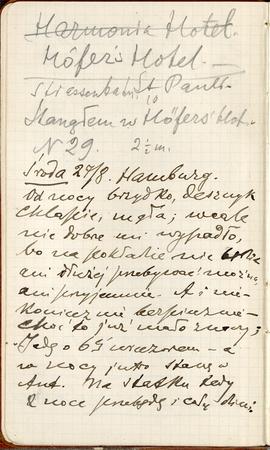 Harmonia Hotel.
Höfers Hotel. —
St. Pauli.
10
Stanąłem w Höfers Hot.
N 29. 2 ½ m.
Środa 27/8. Hamburg.
Od nocy brzydko, deszczyk
chlapie, mgła; wcale
nie dobre mi wypadło,
bo na pokładzie nie
ani dłużej przebywać można,
ani przyjemnie. A i
bezpiecznie
choć to już mało znaczy;
Jadę o 6½ wieczorem — a
w nocy jutro stanę w
Ant. Na statku tedy
2 noce przebędę i cały dzień.